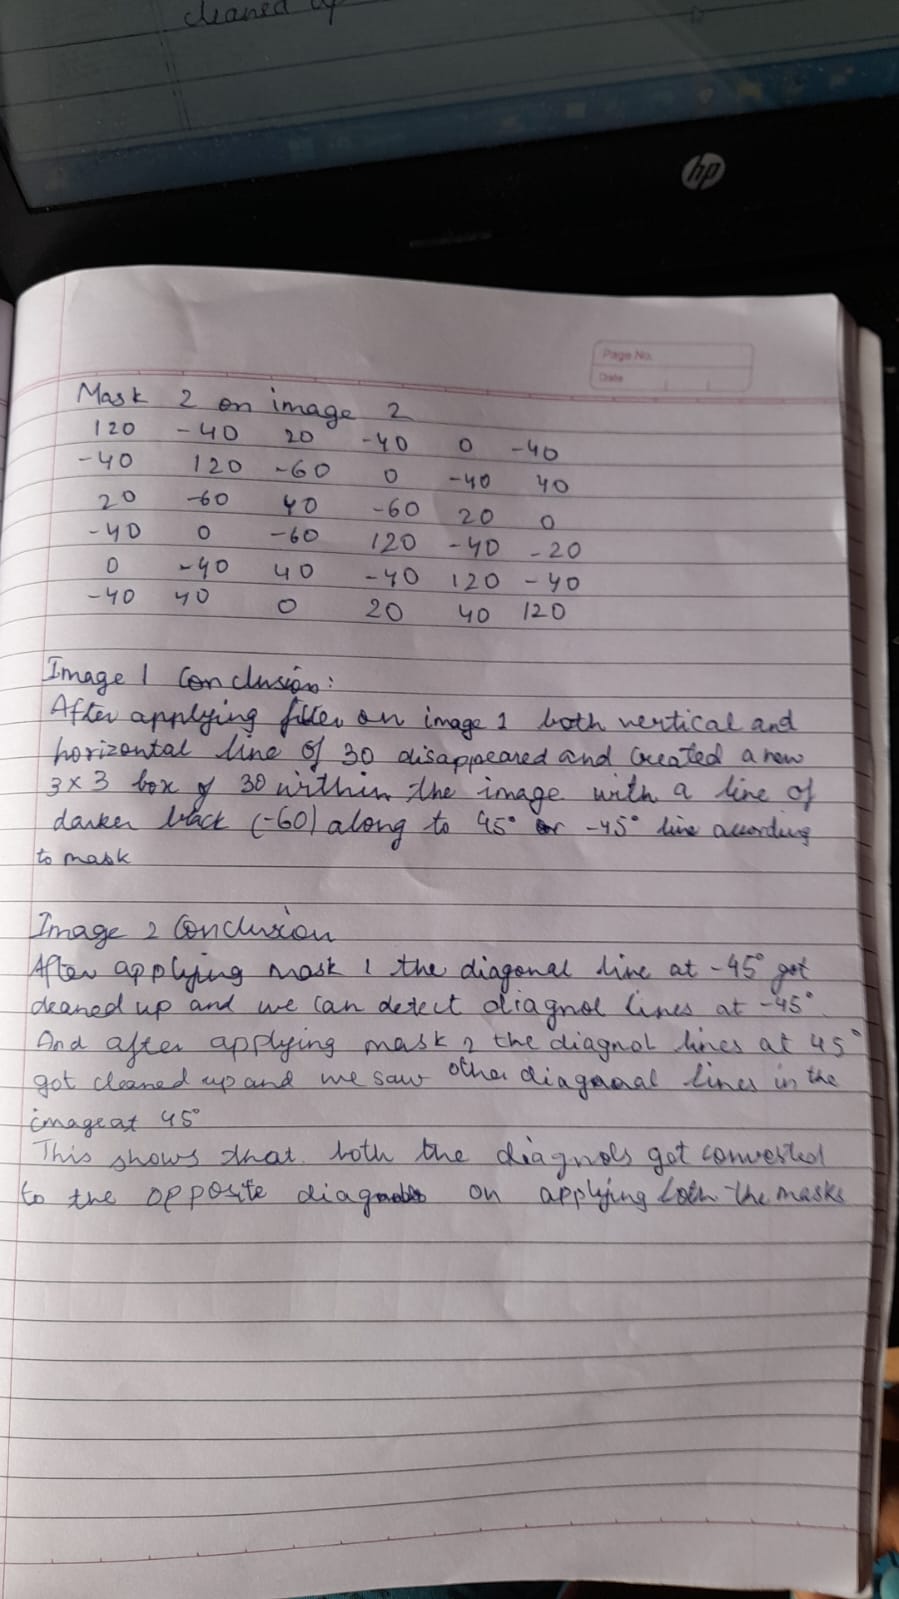 cleaned up
hp
Page No.
Date
Mask 2 on image 2
120 -40 20 -40 0 -40
-40 120 -60 0 -40 40
20 -60 40 -60 20 0
-40 0 -60 120 -40 -20
0 -40 40 -40 120 -40
-40 40 0 20 40 120
Image 1 Conclusion:
After applying filter on image 1 both vertical and
horizontal line of 30 disappeared and created a new
3x3 box of 30 within the image with a line of
darker black (-60) along to 45° or -45° line according
to mask
Image 2 Conclusion
After applying mask 1 the diagonal line at -45° got
cleaned up and we can detect diagnol lines at -45°.
And after applying mask 2 the diagnol lines at 45°
got cleaned up and we saw other diagonal lines in the
image at 45°
This shows that both the diagnols got converted
to the opposite diagnols on applying both the masks